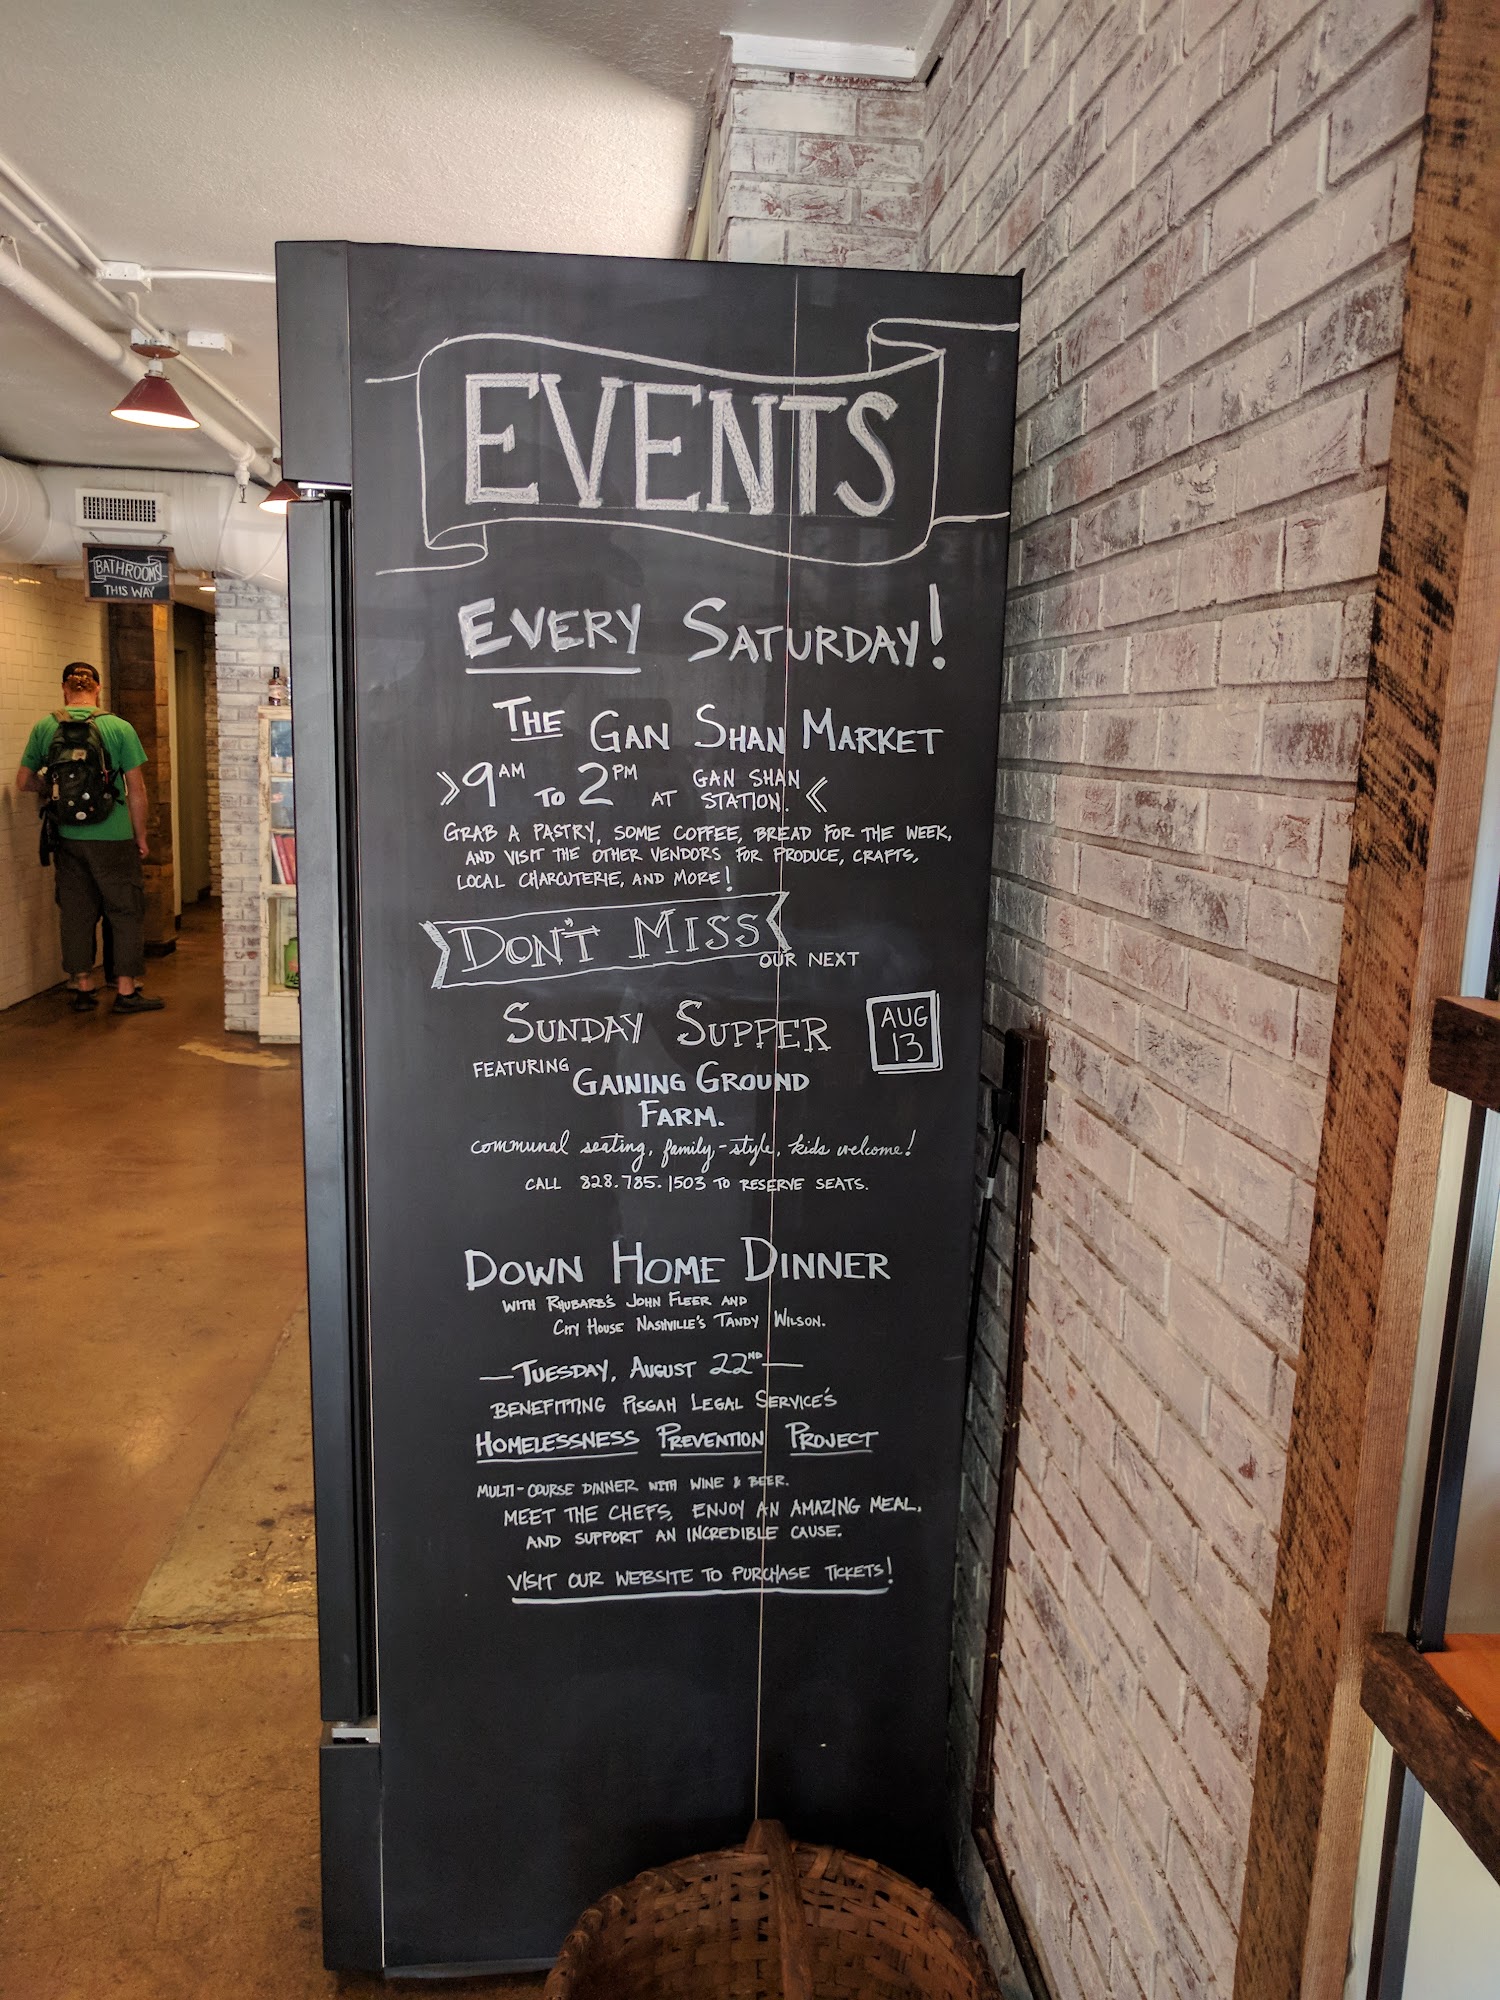 EVENTS
EVERY SATURDAY!
THE GAN SHAN MARKET
9 AM TO 2 PM AT GAN SHAN STATION.
GRAB A PASTRY, SOME COFFEE, BREAD FOR THE WEEK,
AND VISIT THE OTHER VENDORS FOR PRODUCE, CRAFTS,
LOCAL CHARCUTERIE, AND MORE!
DON'T MISS
OUR NEXT
SUNDAY SUPPER
AUG
13
FEATURING GAINING GROUND
FARM.
communal seating, family-style, kids welcome!
CALL 828.785.1503 TO RESERVE SEATS.
DOWN HOME DINNER
WITH RHUBARB'S JOHN FLEER AND
CITY HOUSE NASHVILLE'S TANDY WILSON.
—TUESDAY, AUGUST 22ND—
BENEFITTING PISGAH LEGAL SERVICE'S
HOMELESSNESS PREVENTION PROJECT
MULTI-COURSE DINNER WITH WINE & BEER.
MEET THE CHEFS, ENJOY AN AMAZING MEAL,
AND SUPPORT AN INCREDIBLE CAUSE.
VISIT OUR WEBSITE TO PURCHASE TICKETS!
BATHROOMS
THIS WAY